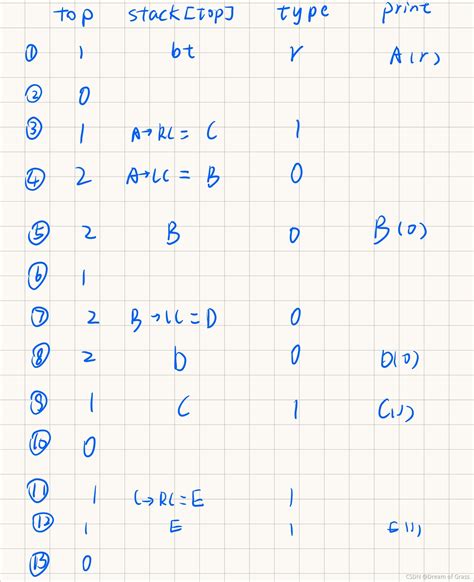 top stack[top] type print
① 1 bt r A(r)
② 0
③ 1 A→RC = C 1
④ 2 A→LC = B 0
⑤ 2 B 0 B(0)
⑥ 1
⑦ 2 B→LC=D 0
⑧ 2 D 0 D(0)
⑨ 1 C 1 C(1)
⑩ 0
⑪ 1 C→RC=E 1
⑫ 1 E 1 E(1)
⑬ 0
CSDN @Dream of Grass